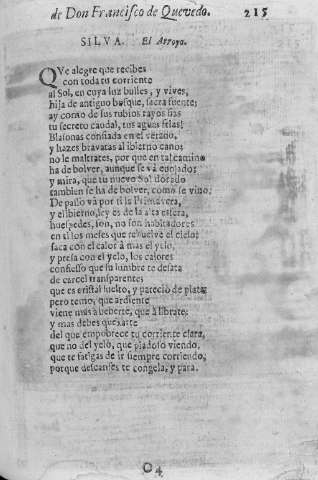 de Don Francisco de Quevedo. 215
SILVA. El Arroyo.
QVe alegre que recibes
con toda tu corriente
al Sol, en cuya luz bulles, y vives,
hija de antiguo bosque, sacra fuente;
ay como de sus rubios rayos fias
tu secreto caudal, tus aguas frias!
Blasonas confiada en el verano,
y hazes bravatas al ibierno cano:
no le maltrates, por que en tal camino
ha de bolver, aunque se và
y mira, que tu nuevo Sol
tambien se ha de bolver, como se vino;
De passo và por ti la Primavera,
y el ibierno, ley es de la alta esfera,
huespedes, son, no son habitadores
en ti los meses que rebuelve el cielo;
saca con el calor à mas el yelo,
y presa con el yelo, los calores
confiesso que su lumbre te desata
de carcel transparente;
que es cristal suelto, y pareciò de plata:
pero temo, que ardiente
viene mas à beberte, que à librarte;
y mas debes quexarte
del que empobrece tu corriente clara,
que no del yelo, que piadoso viendo,
que te fatigas de ir siempre corriendo,
porque descanses te congela, y para.
O 4